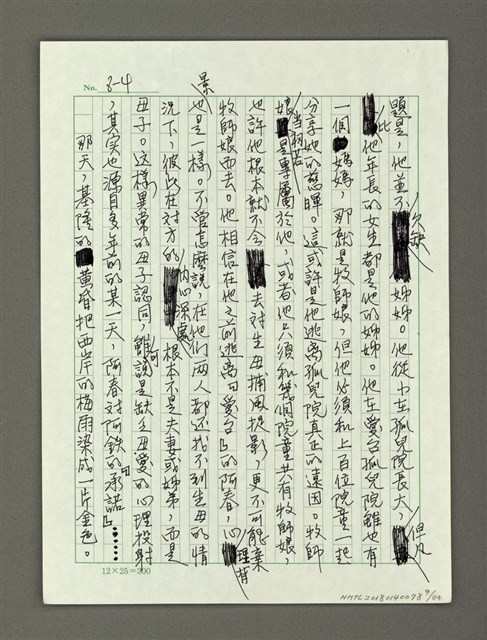 No. 8-4
題是，他並不欠缺姊姊。他從小在孤兒院長大，但凡
比他年長的女生都是他的姊姊。他在愛台孤兒院雖也有
一個媽媽，那就是牧師娘，但他必須和上百位院童一起
分享她的慈暉。這或許是他逃离孤兒院真正的遠因。牧師
娘當初若是專屬於他，或者他只須和幾個院童共有牧師娘，
也許他根本就不会去对生母捕風捉影，更不可能棄
牧師娘而去。他相信在他之前逃离「愛台」的阿春，心理背
景也是一樣。不管怎麼說，在他们两人都还找不到生母的情
況下，彼此在对方的內心深處根本不是夫妻或姊弟，而是
母子。这样異常的母子認同，雖說是缺乏母愛的心理投射
，其实也源自多年前的某一天，阿春对阿鉄的「承諾」……。
那天，基隆的黃昏把西岸的梅雨染成一片金色。
12×25=300
NMTL20180140078 9/84